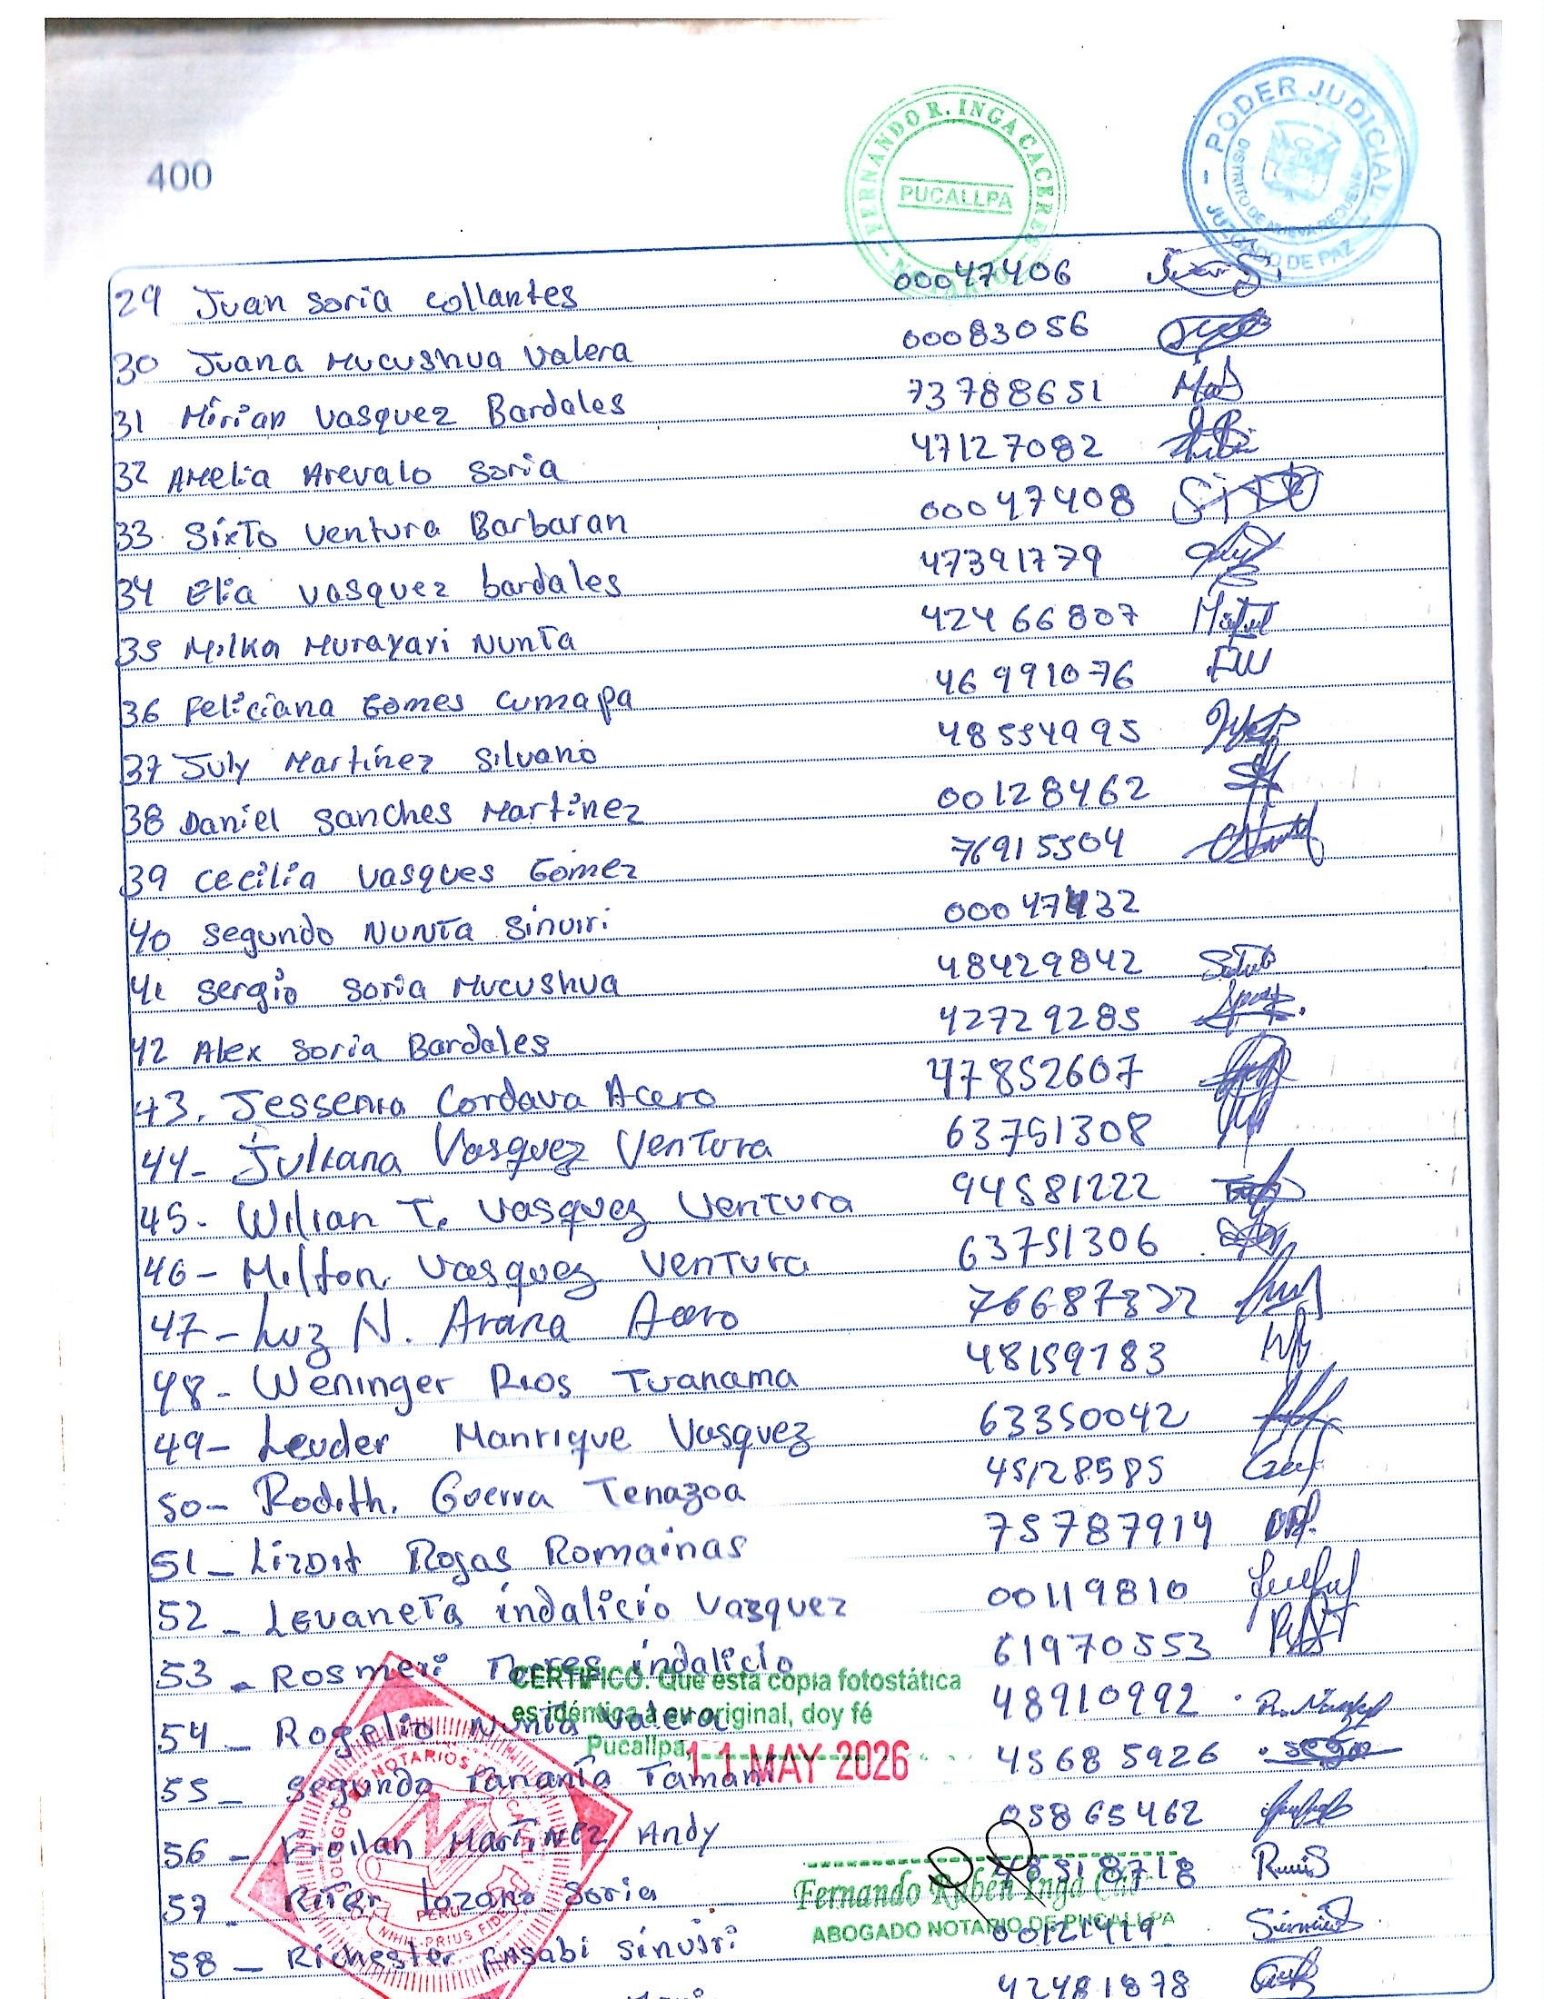 400
FERNANDO R. INGA CACERES
PUCALLPA
PODER JUDICIAL
DISTRITO DE NUEVA REQUENA
JUZGADO DE PAZ
29 Juan Soria Collantes 00047406
30 Juana Mucushua Valera 00083056
31 Mirian Vasquez Bardales 73788651
32 Amelia Arevalo Soria 47127082
33 Sixto Ventura Barbaran 00047408
34 Elia Vasquez bardales 47391779
35 Milka Murayari Nunta 42466807
36 Feliciana Gomes Cumapa 46991076
37 July Martinez Silvano 48554995
38 Daniel Sanches Martinez 00128462
39 Cecilia Vasques Gomez 76915504
40 Segundo Nunta Sinuiri 00047432
41 Sergio Soria Mucushua 48429842
42 Alex Soria Bardales 42729285
43. Jessenia Cordava Acero 47852607
44- Juliana Vasquez Ventura 63751308
45- Wilian T. Vasquez Ventura 94581222
46- Milton Vasquez Ventura 63751306
47- Luz N. Arana Acero
48- Weninger Rios Tuanama 48159783
49- Leuder Manrique Vasquez 63350042
50- Rodith. Guerra Tenazoa 45128585
51- Lizdit Rojas Romainas 75787914
52- Levaneta indalicio Vazquez 00119810
53- Rosmeri Torres indalicio 61970553
54- Rogelio Nunta Valera 48910992
55- Segundo Tananta Tamani 45685926
56- Froilan Martinez Andy 05865462
57- Riter Lozano Soria
58- Richester Ansabi Sinuiri 00121419
42481878
CERTIFICO: Que esta copia fotostática
es idéntica a su original, doy fé
Pucallpa, 11 MAY 2026
COLEGIO DE NOTARIOS
PERU
NIHIL PRIUS FIDE
Fernando Rubén Inga Các
ABOGADO NOTARIO DE PUCALLPA